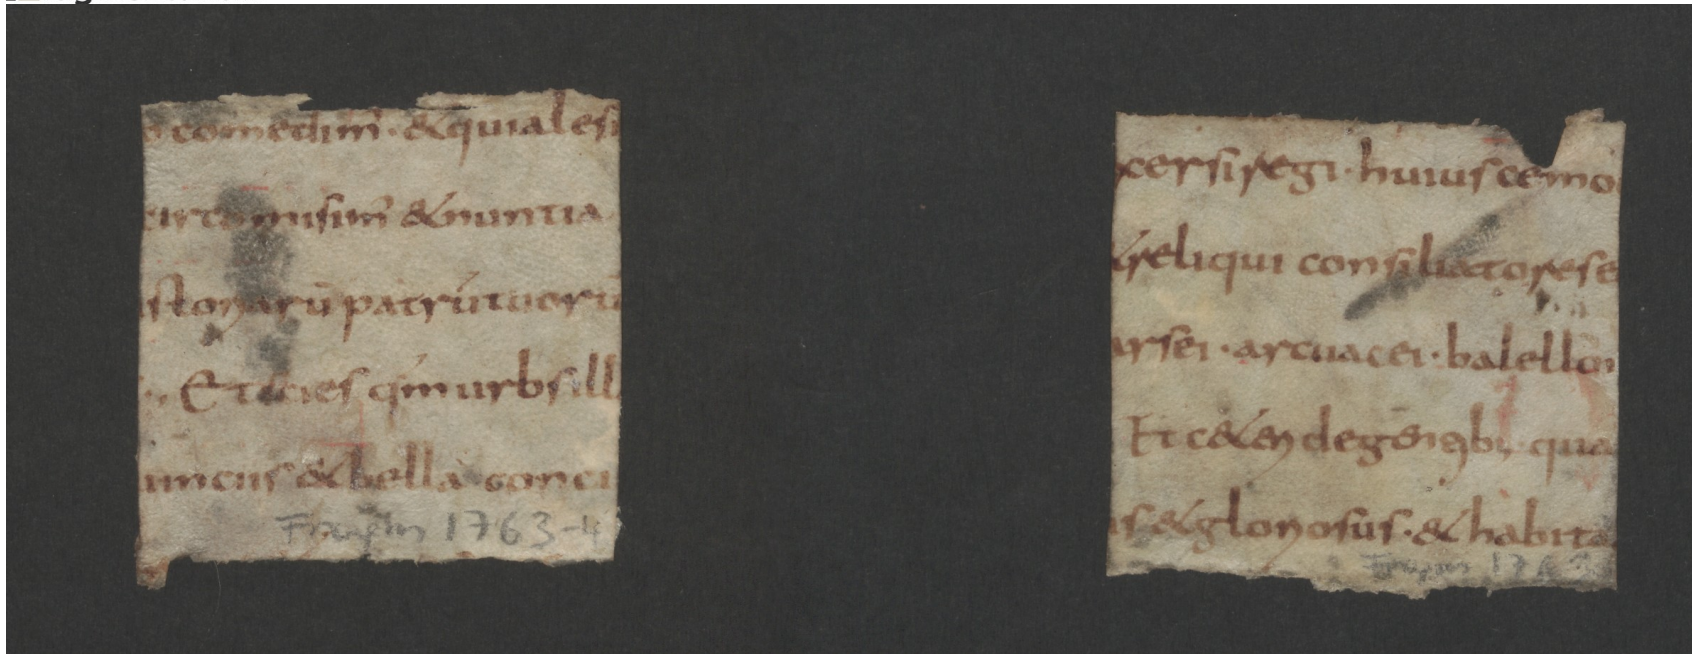 comedim̄ · &quialesi
misim̄ &nuntia
storiarū patrū tuorū
Et scies qm̄ urbs ill
&bella conci
Fragm 1763-4
xersi regi · huiuscemo
&reliqui consiliatores e
arsei · arcuacei · babellon
Et c&eri de gentibus · qua
s &gloriosus · & habita